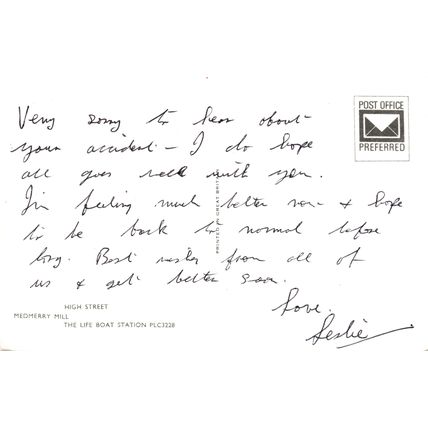 Very sorry to hear about
your accident – I do hope
all goes well with you.
I'm feeling much better now & hope
to be back to normal before
long. Best wishes from all of
us & get better soon.
Love.
Leslie
POST OFFICE
PREFERRED
PRINTED IN GREAT BRITAIN
HIGH STREET
MEDMERRY MILL
THE LIFE BOAT STATION PLC3228